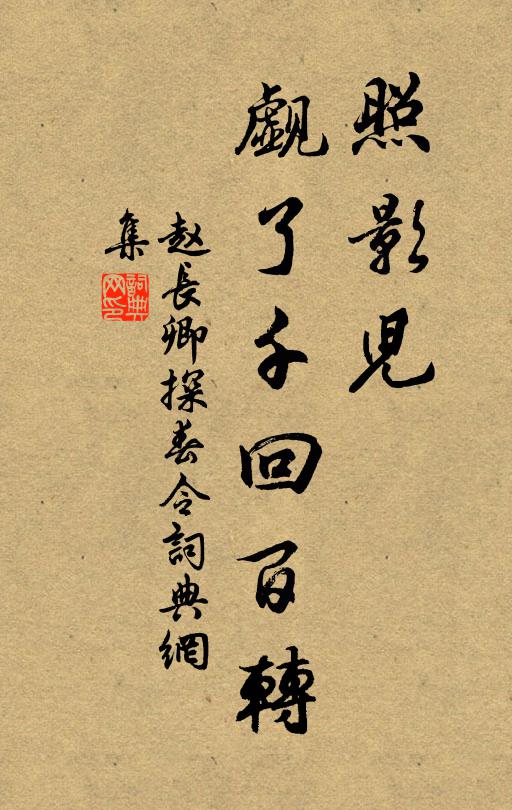 照影児
觑了千回百轉
赵長卿探春令詞典網
集
詞典
网印